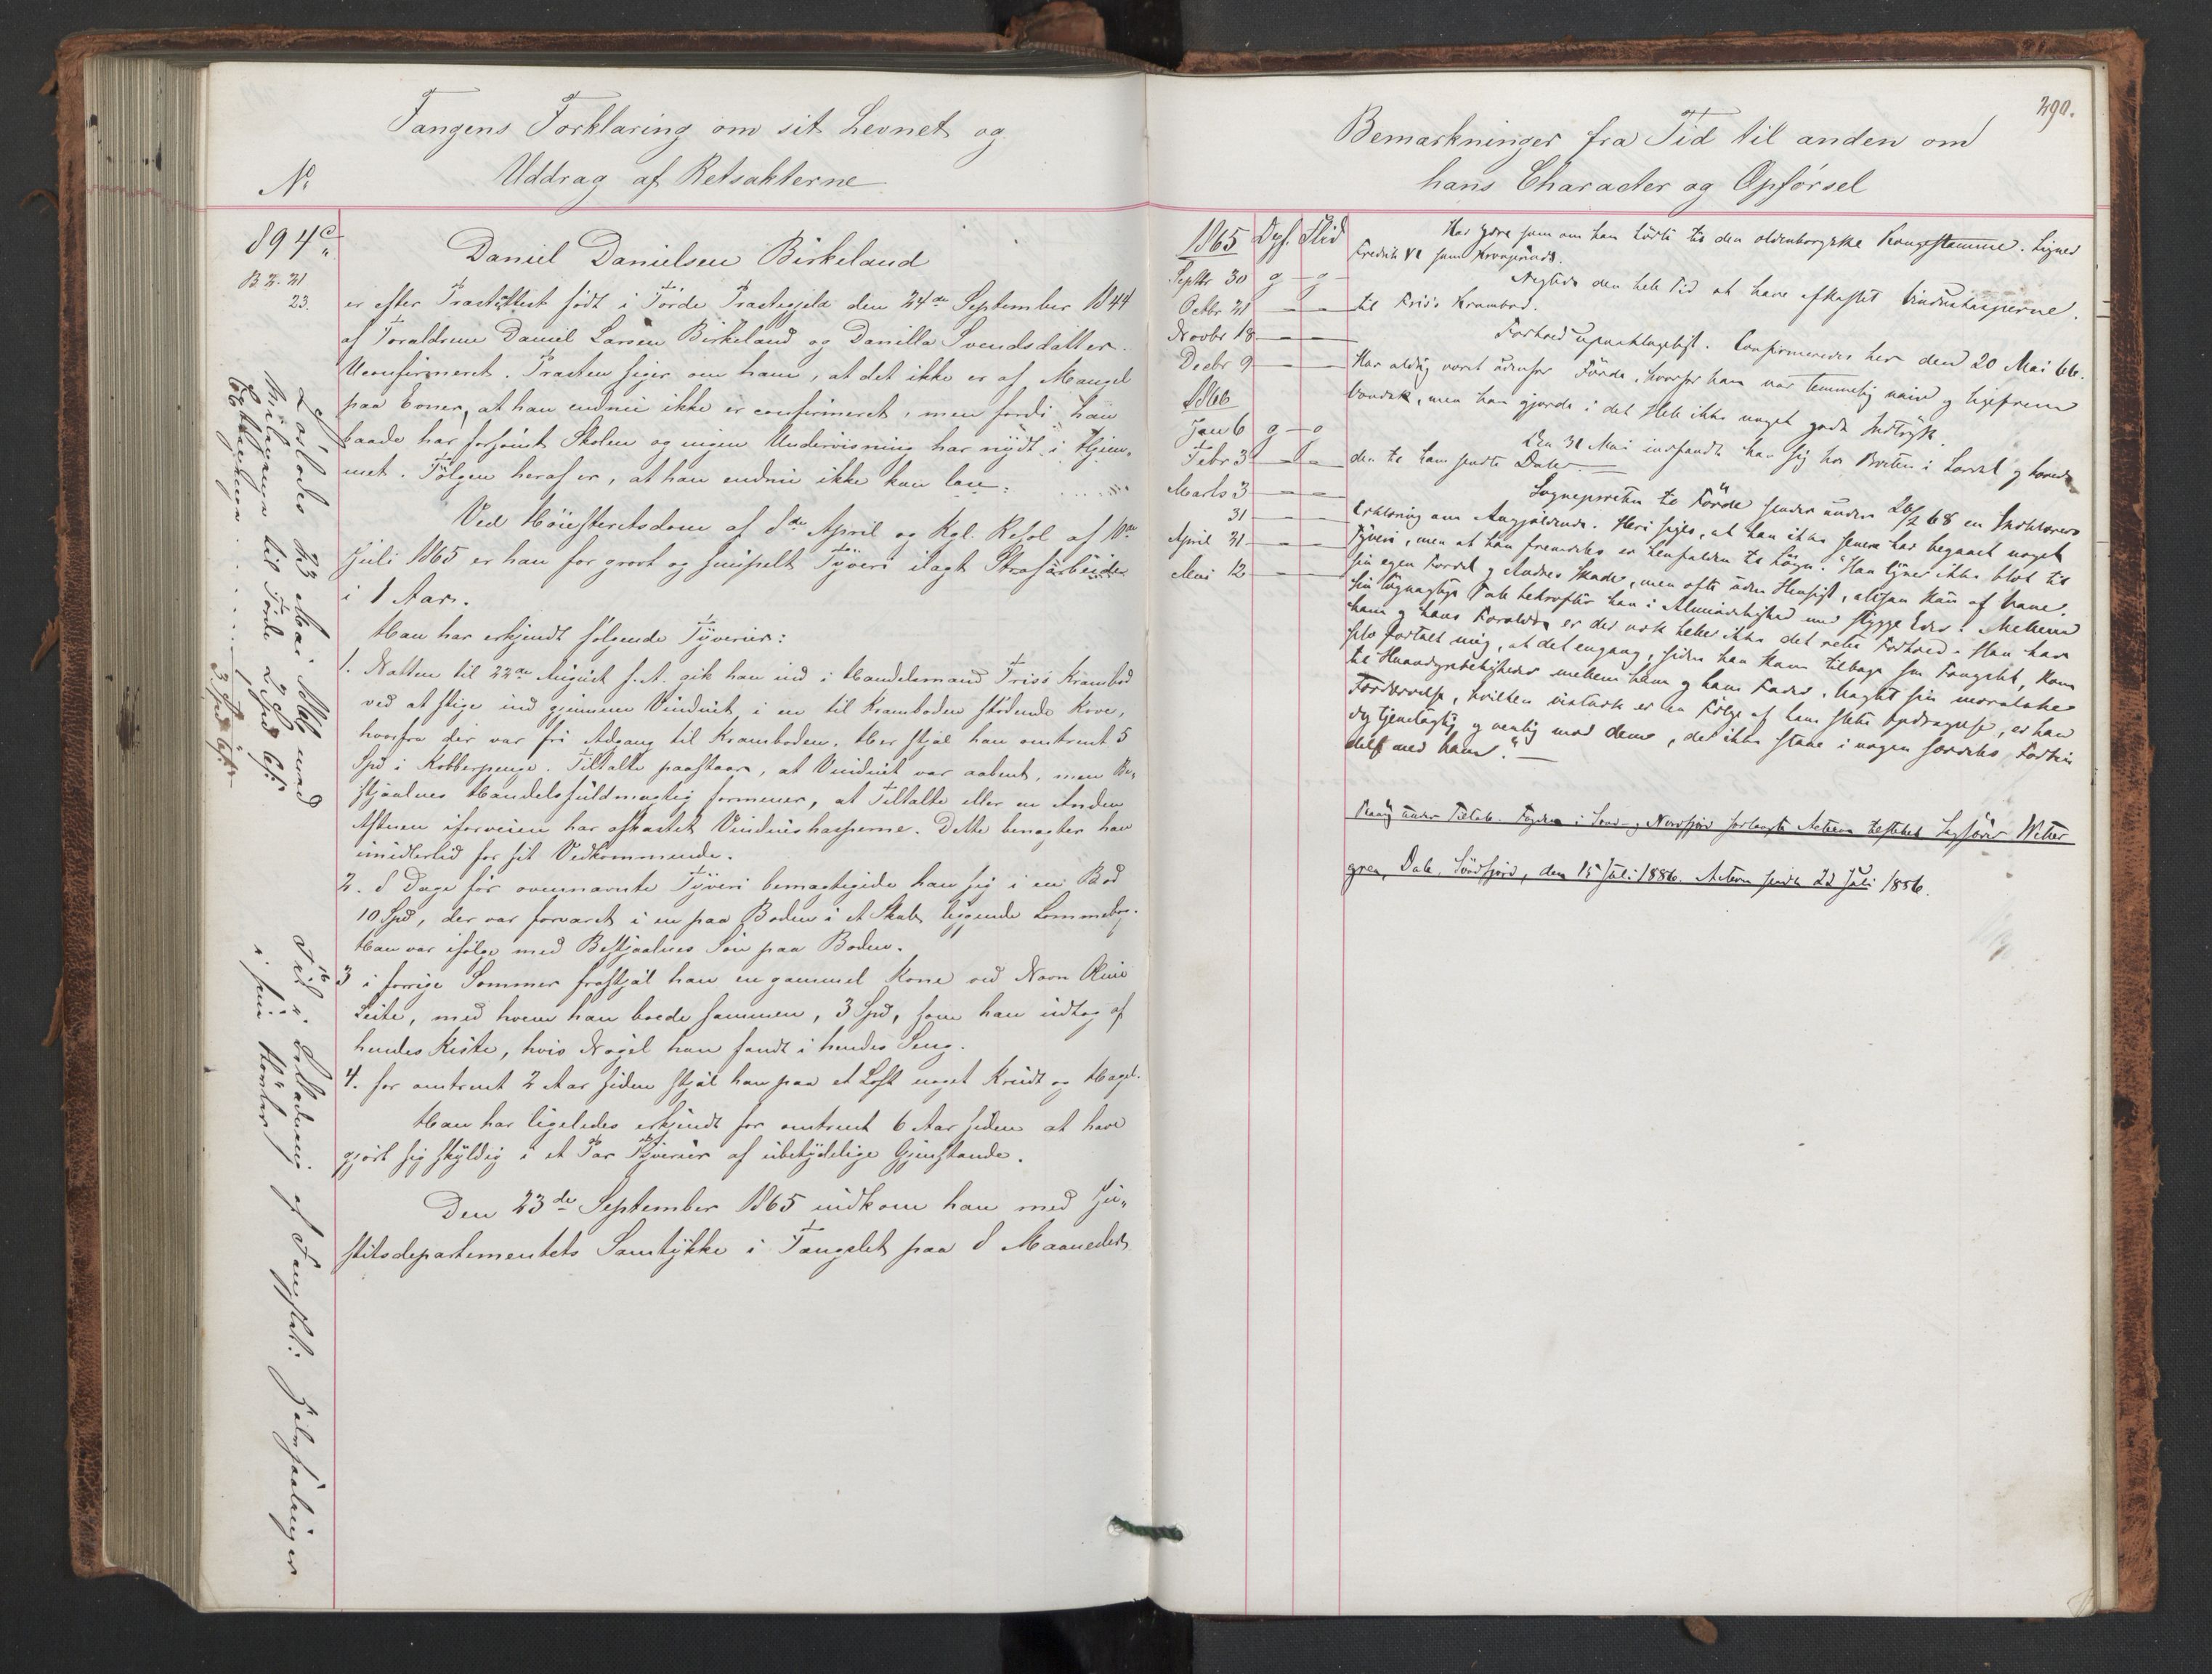 Fangens Forklaring om sit Levnet og
Uddrag af Retsakterne
No
894 c
B 2. 21
23.
Daniel Danielsen Birkeland
er efter Præsteattest født i Førde Præstegjeld den 24de September 1844
af Forældrene Daniel Larsen Birkeland og Danilla Svendsdatter.
Uconfirmeret. Præsten siger om ham, at det ikke er af Mangel
paa Evner, at han endnu ikke er confirmeret, men fordi han
baade har forsømt Skolen og ingen Undervisning har nydt i Hjem-
met. Følgen heraf er, at han endnu ikke kan læse.
Ved Høiesteretsdom af 8de April og Kgl. Resol af 10de
Juli 1865 er han for grovt og simpelt Tyveri ilagt Strafarbeide
i 1 Aar.
Han har erkjendt følgende Tyverier:
1. Natten til 22de August f. A. gik han ind i Handelsmand Friis Krambod
ved at stige ind gjennem Vinduet i en til Kramboden stødende Kove,
hvorfra der var fri Adgang til Kramboden. Her stjal han omtrent 5
Spd i Kobberpenge. Tiltalte paastaar, at Vinduet var aabent, men Be-
stjaalnes Handelsfuldmægtig formener, at Tiltalte eller en Anden
Aftenen iforveien har afkastet Vindushasperne. Dette benægter han
imidlertid for sit Vedkommende.
2. 8 Dage før ovennævnte Tyveri bemægtigede han sig i en Bod
10 Spd, der var forvaret i en paa Boden i et Skab liggende Lommebog.
Han var ifølge med Bestjaalnes Søn paa Boden.
3 i forrige Sommer frastjal han en gammel Kone ved Navn Oline
Leite, med hvem han boede sammen, 3 Spd, som han udtog af
hendes Kiste, hvis Nøgel han fandt i hendes Seng.
4. for omtrent 2 Aar siden stjal han paa et Loft noget Krudt og Hagel.
Han har ligeledes erkjendt for omtrent 6 Aar siden at have
gjort sig skyldig i et Par Tyverier af ubetydelige Gjenstande.
Den 23de September 1865 indkom han med Ju-
stitsdepartementets Samtykke i Fængslet paa 8 Maaneder
Løslodes 23 Mai 1866 med
Milepenge til Førde 2 Spd 6 s
3 Spd 6 s
i sin Hjembygd
290.
Bemærkninger fra Tid til anden om
hans Character og Opførsel
1865 Opf. Flid
Septbr 30 g – g
Octbr 21 – –
Novbr 18 – –
Decbr 9 – –
1866
Jan 6 g – g
Febr 3 – –
Marts 3 – –
31 – –
April 21 – –
Mai 12 – –
Har Ydre som om han hørte til den oldenborgske Kongestamme. Ligner
Fredrik VI som Kronprinds.
Negtede den hele Tid at have afkastet Vindushasperne
til Friis's Krambod.
Forhold upaaklageligt. Confirmeredes her den 20 Mai 66.
Har aldrig været udenfor Førde, hvorfor han var temmelig naiv og ligefrem
bondsk, men han gjorde i det Hele ikke noget godt Indtryk.
Den 31 Mai indfandt han sig hos Presten i Førde og
den til ham sendte Daler.
Sognepresten til Førde sender under 26/2 68 en
Erklæring om Angjældende. Heri siges, at han ikke senere har begaaet noget
Tyveri, men at han fremdeles er henfalden til Løgn. "Han lyver ikke blot til
sin egen Fordel og Andres Skade, men ofte uden Hensigt, altsaa kun af Vane.
Sin løgnagtige Tale bekræfter han i Almindelighed med stygge Eder. Mellem
ham og hans Forældre er der nok heller ikke det rette Forhold. Han har
selv fortalt mig, at det engang, siden han kom tilbage fra Fængslet, kom
til Haandgribeligheder mellem ham og hans Fader. Uagtet sin moralske
Fordærvelse, hvilken vistnok er en Følge af hans slette Opdragelse, er han
dog tjenstagtig og venlig mod dem, der ikke staae i nogen særdeles For-
del med ham." –
Paany under Tiltale. Fogden i Sønd- og Nordfjord forlangte Acterne tilstillet Sagfører Wetter-
gren, Dale, Søndfjord, den 15 Juli 1886. Acterne sendt 22 Juli 1886.